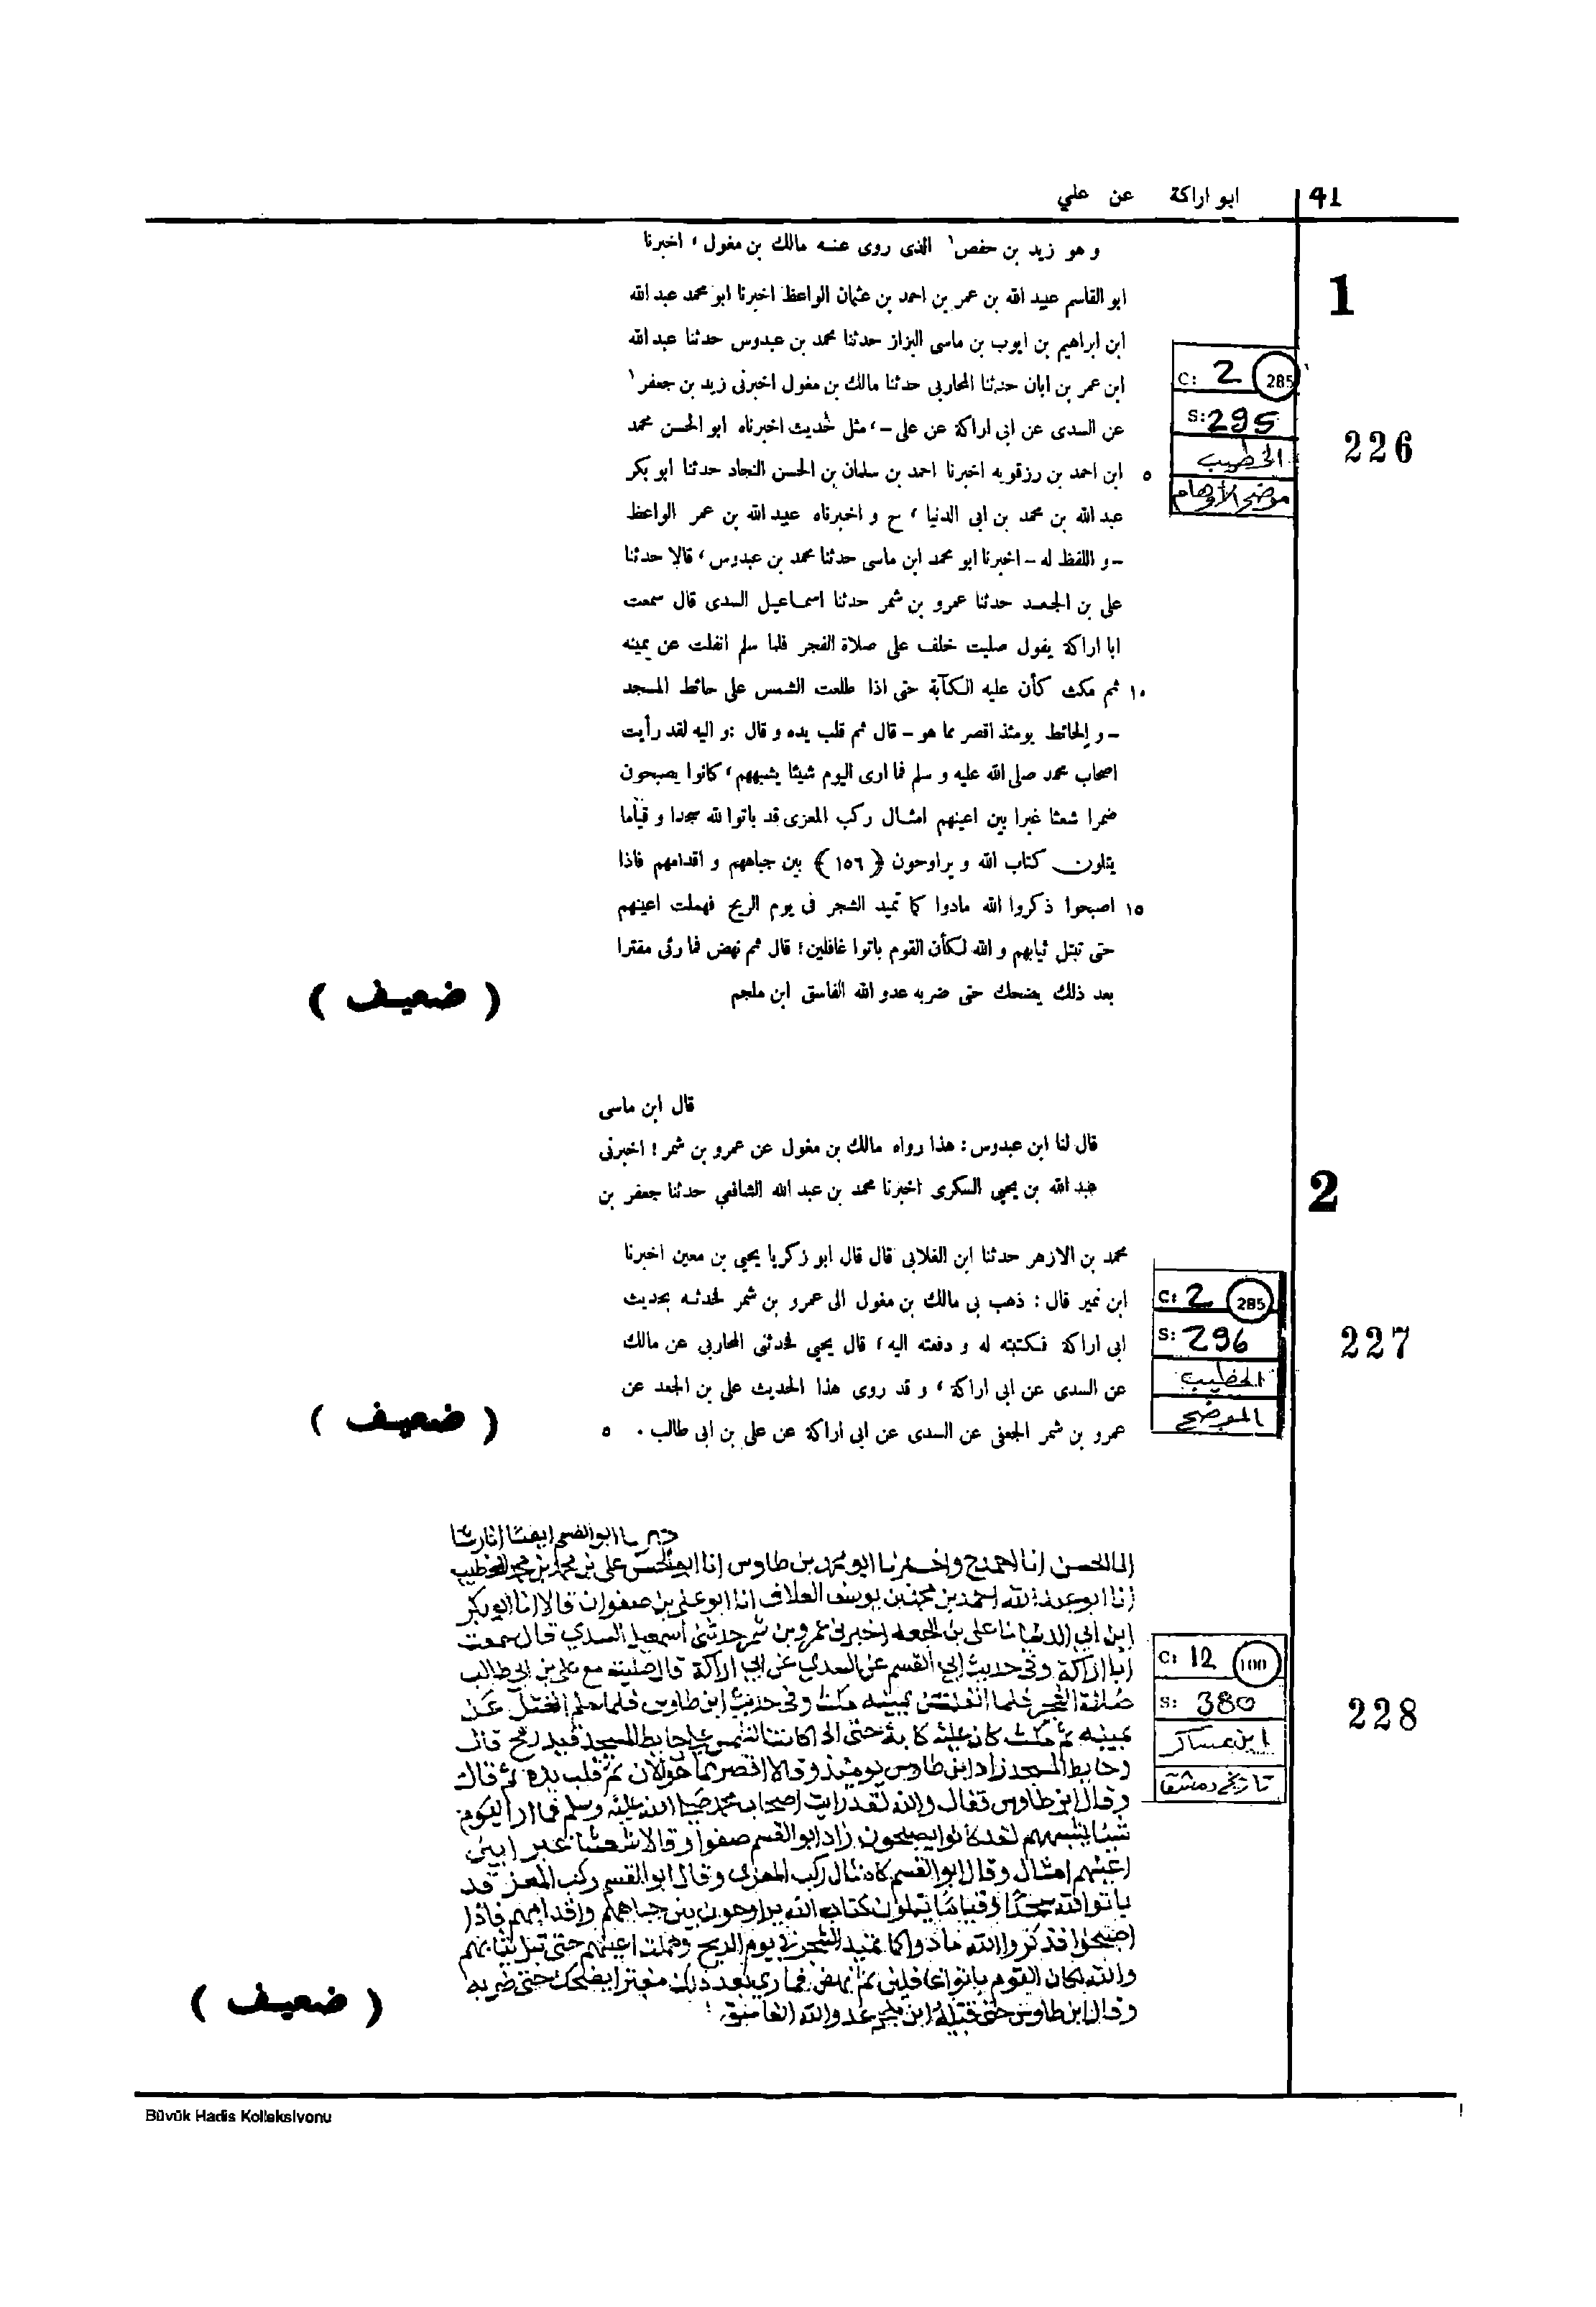 41 ابو اراكة عن علي
و هو زيد بن حفص١ الذى روى عنه مالك بن مغول، اخبرنا
1
ابو القاسم عبيد الله بن عمر بن احمد بن عثمان الواعظ اخبرنا ابو محمد عبد الله
ابن ابراهيم بن ايوب بن ماسى البزاز حدثنا محمد بن عبدوس حدثنا عبد الله
ابن عمر بن ابان حدثنا المحاربى حدثنا مالك بن مغول اخبرنى زيد بن جعفر١
عن السدى عن ابى اراكة عن على -، مثل حديث اخبرناه ابو الحسن محمد
٥ ابن احمد بن رزقويه اخبرنا احمد بن سلمان بن الحسن النجاد حدثنا ابو بكر
عبد الله بن محمد بن ابى الدنيا، ح و اخبرناه عبيد الله بن عمر الواعظ
- و اللفظ له - اخبرنا ابو محمد ابن ماسى حدثنا محمد بن عبدوس، قالا حدثنا
على بن الجعد حدثنا عمرو بن شمر حدثنا اسماعيل السدى قال سمعت
ابا اراكة يقول صليت خلف على صلاة الفجر فلما سلم انفلت عن يمينه
١٠ ثم مكث كأن عليه الكآبة حتى اذا طلعت الشمس على حائط المسجد
- و الحائط يومئذ اقصر مما هو - قال ثم قلب يده و قال: و اليه لقد رأيت
اصحاب محمد صلى الله عليه و سلم فما ارى اليوم شيئا يشبههم، كانوا يصبحون
ضمرا شعثا غبرا بين اعينهم امثال ركب المعزى قد باتوا لله سجدا و قياما
يتلون كتاب الله و يراوحون (١٥٦) بين جباههم و اقدامهم فاذا
١٥ اصبحوا ذكروا الله مادوا كما تميد الشجر فى يوم الريح فهملت اعينهم
حتى تبتل ثيابهم و الله لكأن القوم باتوا غافلين؛ قال ثم نهض فما رئى مفترا
بعد ذلك يضحك حتى ضربه عدو الله الفاسق ابن ملجم
( ضعيف )
C: 2 285
S: 295
الخطيب
موضح الأوهام
226
قال ابن ماسى
قال لنا ابن عبدوس: هذا رواه مالك بن مغول عن عمرو بن شمر؛ اخبرنى
عبد الله بن يحيى السكرى اخبرنا محمد بن عبد الله الشافعي حدثنا جعفر بن
2
محمد بن الازهر حدثنا ابن الغلابى قال قال ابو زكريا يحيى بن معين اخبرنا
ابن نمير قال: ذهب بى مالك بن مغول الى عمرو بن شمر فحدثه بحديث
ابى اراكة فكتبته له و دفعته اليه، قال يحيى فحدثنى المحاربى عن مالك
عن السدى عن ابى اراكة، و قد روى هذا الحديث على بن الجعد عن
عمرو بن شمر الجعفى عن السدى عن ابى اراكة عن على بن ابى طالب . ٥
( ضعيف )
C: 2 285
S: 296
الخطيب
الموضح
227
انا ابو الحسن على بن محمد بن محمد الخطيب
انا ابو عبد الله احمد بن محمد بن يوسف العلاف انا ابو على بن صفوان قالا انا ابو بكر
ابن ابي الدنيا نا على بن الجعد اخبرنى عمرو بن شمر حدثنى اسمعيل السدي قال سمعت
ابا اراكة وفى حديث ابى القسم عن السدي عن ابى اراكة قال صليت مع على بن ابى طالب
صلاة الفجر فلما انفلت عن يمينه مكث وفى حديث ابن طاوس فلما سلم انفتل عن
يمينه ثم مكث كان عليه كابة حتى اذا كانت الشمس على حايط المسجد قيد رمح قال
وحايط المسجد زاد ابن طاوس يومئذ وقالا اقصر مما هو الان ثم قلب يده ثم قال
وقال ابن طاوس فقال والله لقد رايت اصحاب محمد صلى الله عليه وسلم فما ارا اليوم
شيئا يشبههم لقد كانوا يصبحون زاد ابو القسم صفرا وقالا شعثا غبرا بين
اعينهم امثال وقال ابو القسم كامثال ركب المعزى وقال ابو القسم ركب المعز قد
باتوا لله سجدا وقياما يتلون كتاب الله يراوحون بين جباههم واقدامهم فاذا
اصبحوا فذكروا الله مادوا كما تميد الشجر فى يوم الريح وهملت اعينهم حتى تبل ثيابهم
والله لكان القوم باتوا غافلين ثم نهض فما رى بعد ذلك مفترا يضحك حتى ضربه
وقال ابن طاوس حتى قتله ابن ملجم عدو الله الفاسق
( ضعيف )
C: 12 100
S: 380
ابن عساكر
تاريخ دمشق
228
Büyük Hadis Kolleksiyonu